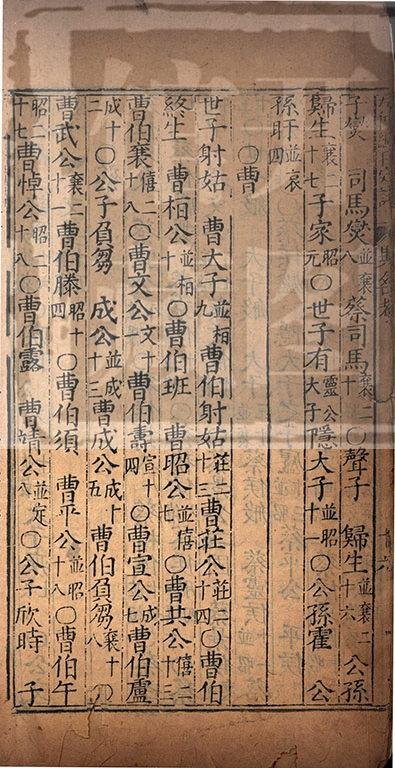 子燮 司馬燮並襄八 蔡司馬襄二十 〇聲子 歸生並襄二十六 公孫
歸生襄二十七 子家昭元 〇世子有靈公大子 隱大子並昭十一 〇公孫霍 公
孫盱並哀四
〇曹
世子射姑 曹大子並桓九 曹伯射姑莊二十三 曹莊公莊二十四 〇曹伯
終生 曹桓公並桓十 〇曹伯班 〇曹昭公並僖七 〇曹共公僖二十三
曹伯襄僖二十八 〇曹文公文十一 曹伯壽宣十四 〇曹宣公成七 曹伯廬
成十三 〇公子負芻 成公並成十三 曹成公成十五 曹伯負芻襄十八 〇
曹武公襄二十一 曹伯滕昭十四 〇曹伯須 曹平公並昭十八 〇曹伯午
昭二十七 曹悼公昭二十八 〇曹伯露 曹靖公並定八 〇公子欣時 子